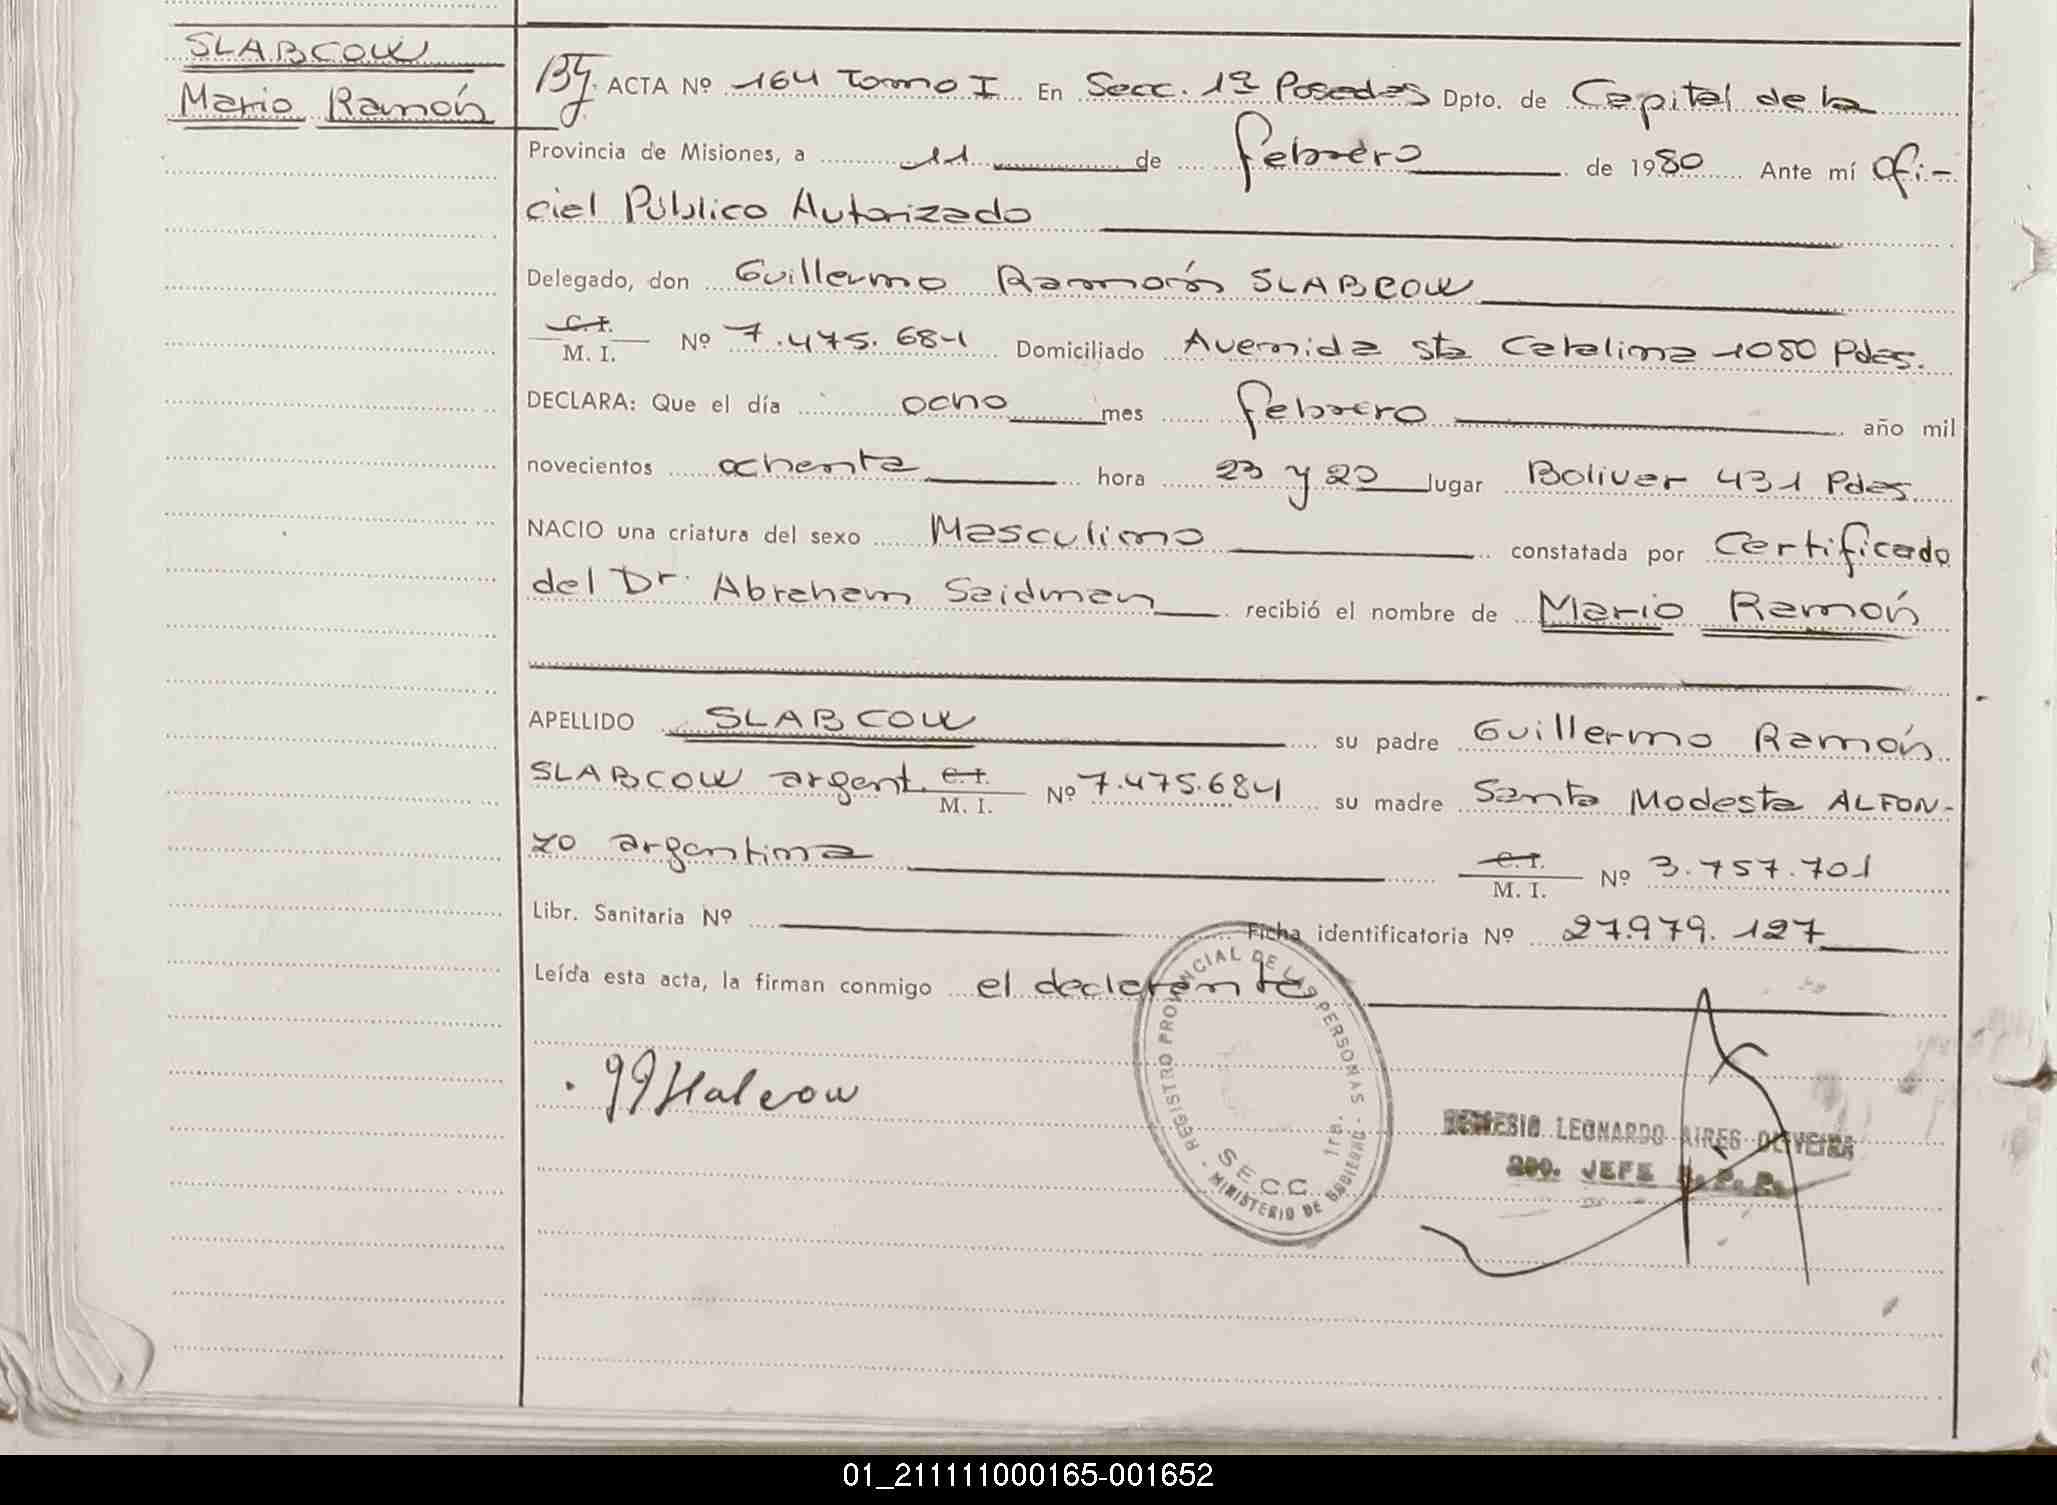 SLABCOW
Mario Ramón
ACTA Nº 164 Tomo I En Secc. 1ª Posadas Dpto. de Capital de la
Provincia de Misiones, a 11 de febrero de 1980 Ante mí Ofi-
cial Público Autorizado
Delegado, don Guillermo Ramón SLABCOW
C.I.
M. I. Nº 7.475.684 Domiciliado Avenida sta Catalina 1080 Pdas.
DECLARA: Que el día ocho mes febrero año mil
novecientos ochenta hora 23 y 20 lugar Bolivar 431 Pdas
NACIO una criatura del sexo Masculino constatada por Certificado
del Dr. Abraham Saidman recibió el nombre de Mario Ramón
APELLIDO SLABCOW su padre Guillermo Ramón
SLABCOW argent. C.I. M. I. Nº 7.475.684 su madre Santa Modesta ALFON-
ZO argentina C.I. M. I. Nº 3.757.701
Libr. Sanitaria Nº Ficha identificatoria Nº 27.979.127
Leída esta acta, la firman conmigo el declarante
REGISTRO PROVINCIAL DE LAS PERSONAS - MINISTERIO DE GOBIERNO -
SECC. 1ra.
LEONARDO AIRES OLIVEIRA
JEFE
01_211111000165-001652